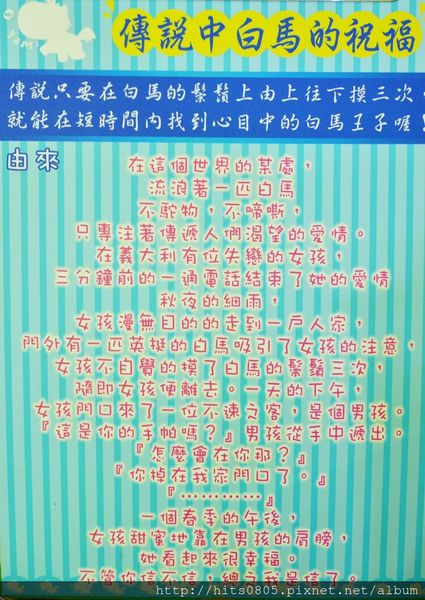 傳說中白馬的祝福
傳說只要在白馬的鬃鬚上由上往下摸三次，
就能在短時間內找到心目中的白馬王子喔！
由來
在這個世界的某處，
流浪著一匹白馬
不駝物，不啼嘶，
只專注著傳遞人們渴望的愛情。
在義大利有位失戀的女孩，
三分鐘前的一通電話結束了她的愛情
秋夜的細雨，
女孩漫無目的的走到一戶人家，
門外有一匹英挺的白馬吸引了女孩的注意，
女孩不自覺的摸了白馬的鬃鬚三次，
隨即女孩便離去。一天的下午，
女孩門口來了一位不速之客，是個男孩。
『這是你的手帕嗎？』男孩從手中遞出。
『怎麼會在你那？』
『你掉在我家門口了。』
『…………』
一個春季的午後，
女孩甜蜜地靠在男孩的肩膀，
她看起來很幸福。
不管你信不信，總之我是信了。
http://hits0805.pixnet.net/album